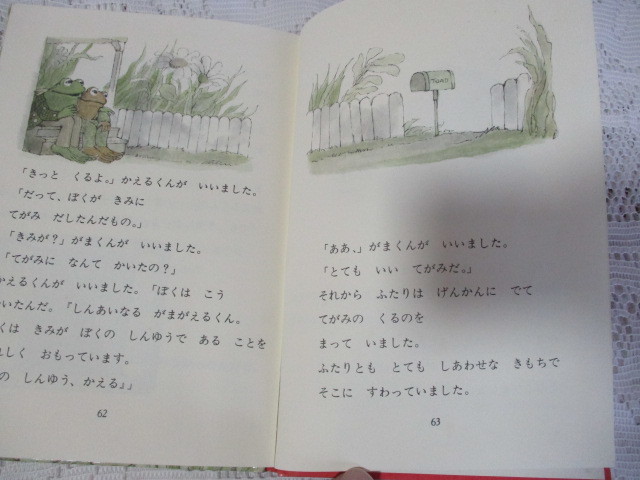 「きっと くるよ。」かえるくんが いいました。
「だって、ぼくが きみに
てがみ だしたんだもの。」
「きみが?」がまくんが いいました。
「てがみに なんて かいたの?」
かえるくんが いいました。「ぼくは こう
いたんだ。『しんあいなる がまがえるくん。
くは きみが ぼくの しんゆうで ある ことを
れしく おもっています。
の しんゆう、かえる』」
62
TOAD
「ああ、」がまくんが いいました。
「とても いい てがみだ。」
それから ふたりは げんかんに でて
てがみの くるのを
まって いました。
ふたりとも とても しあわせな きもちで
そこに すわっていました。
63